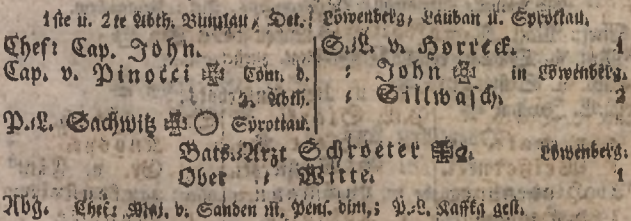 1ste u. 2te Abth. Bunzlau, Det.: Löwenberg, Lauban u. Sprottau.
Chef: Cap. John.
Cap. v. Pinocci ✠ Com. d.
2. Abth.
P.-L. Sachwitz ✠ ◯ Sprottau.
S.-L. v. Horreck. 1
: John ✠ in Löwenberg.
: Gillwasch. 2
Bats.-Arzt Schroeter ✠2. Löwenberg.
Ober : Witte. 1
Abg. Chef: Maj. v. Sanden m. Pens. dim.; P.-L. Kaffka gest.